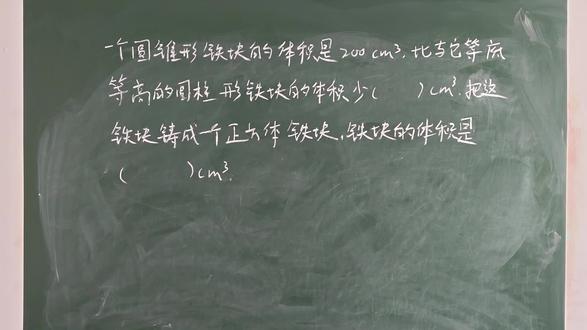 一个圆锥形铁块的体积是200cm³,比与它等底
等高的圆柱形铁块的体积少(  )cm³.把这
铁块铸成一个正方体铁块,铁块的体积是
(  )cm³.